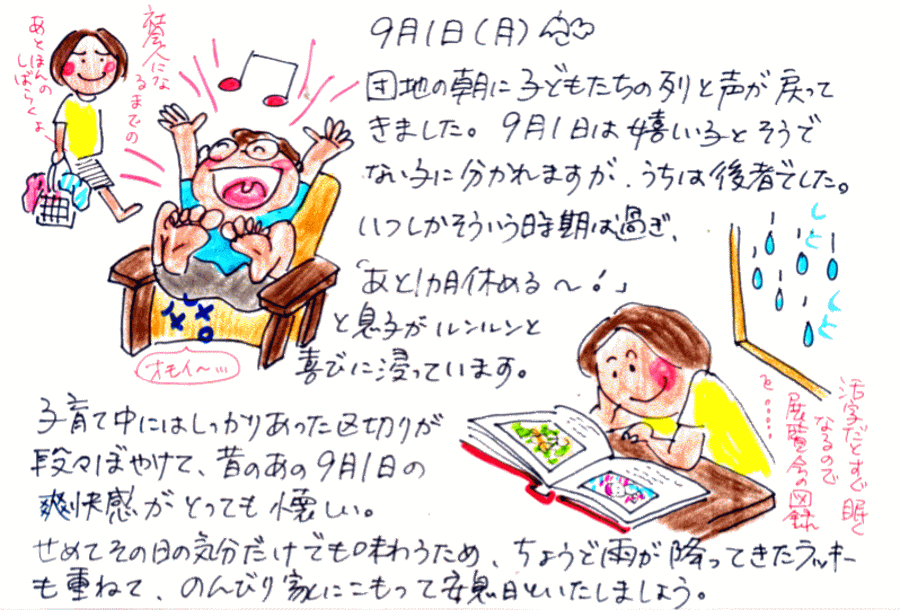 9月1日(月)
団地の朝に子どもたちの列と声が戻って
きました。9月1日は嬉しい子とそうで
ない子に分かれますが、うちは後者でした。
いつしかそういう時期は過ぎ、
「あと1カ月休める〜!」
と息子がルンルンと
喜びに浸っています。
社会人にな
るまでの
あとほんの
しばらくよ
オモイ〜…
子育て中にはしっかりあった区切りが
段々ぼやけて、昔のあの9月1日の
爽快感がとっても懐しい。
せめてその日の気分だけでも味わうため、ちょうど雨が降ってきたラッキー
も重ねて、のんびり家にこもって安息日といたしましょう。
しと
しと
活字だとすぐ眠く
なるので
展覧会の図録
を……